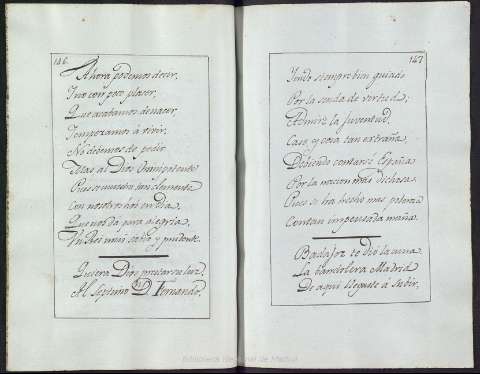 146
Ahora podemos decir,
Y no con poco placer,
Que acabamos de nacer,
Y empezamos á vivir,
No dejemos de pedir
Mas al Dios Omnipotente
Pues se muestra tan clemente
Con nosotros hoi en dia
Que nos dá para alegria,
Un Rei mui sabio y prudente.
Quisera Dios prestar su luz
Al Septimo D. Fernando,
147
Yendo siempre bien guiado
Por la senda de virtud;
Admire la juventud,
Caso, y cosa tan extraña,
Debiendo contarse España
Por la nacion mas dichosa,
Pues se ha hecho mas
Con tan impensada maña.
Badajoz te dió la cuna
La bandolera Madrid
De aqui llegaste á subir,
Biblioteca Regional de Madrid